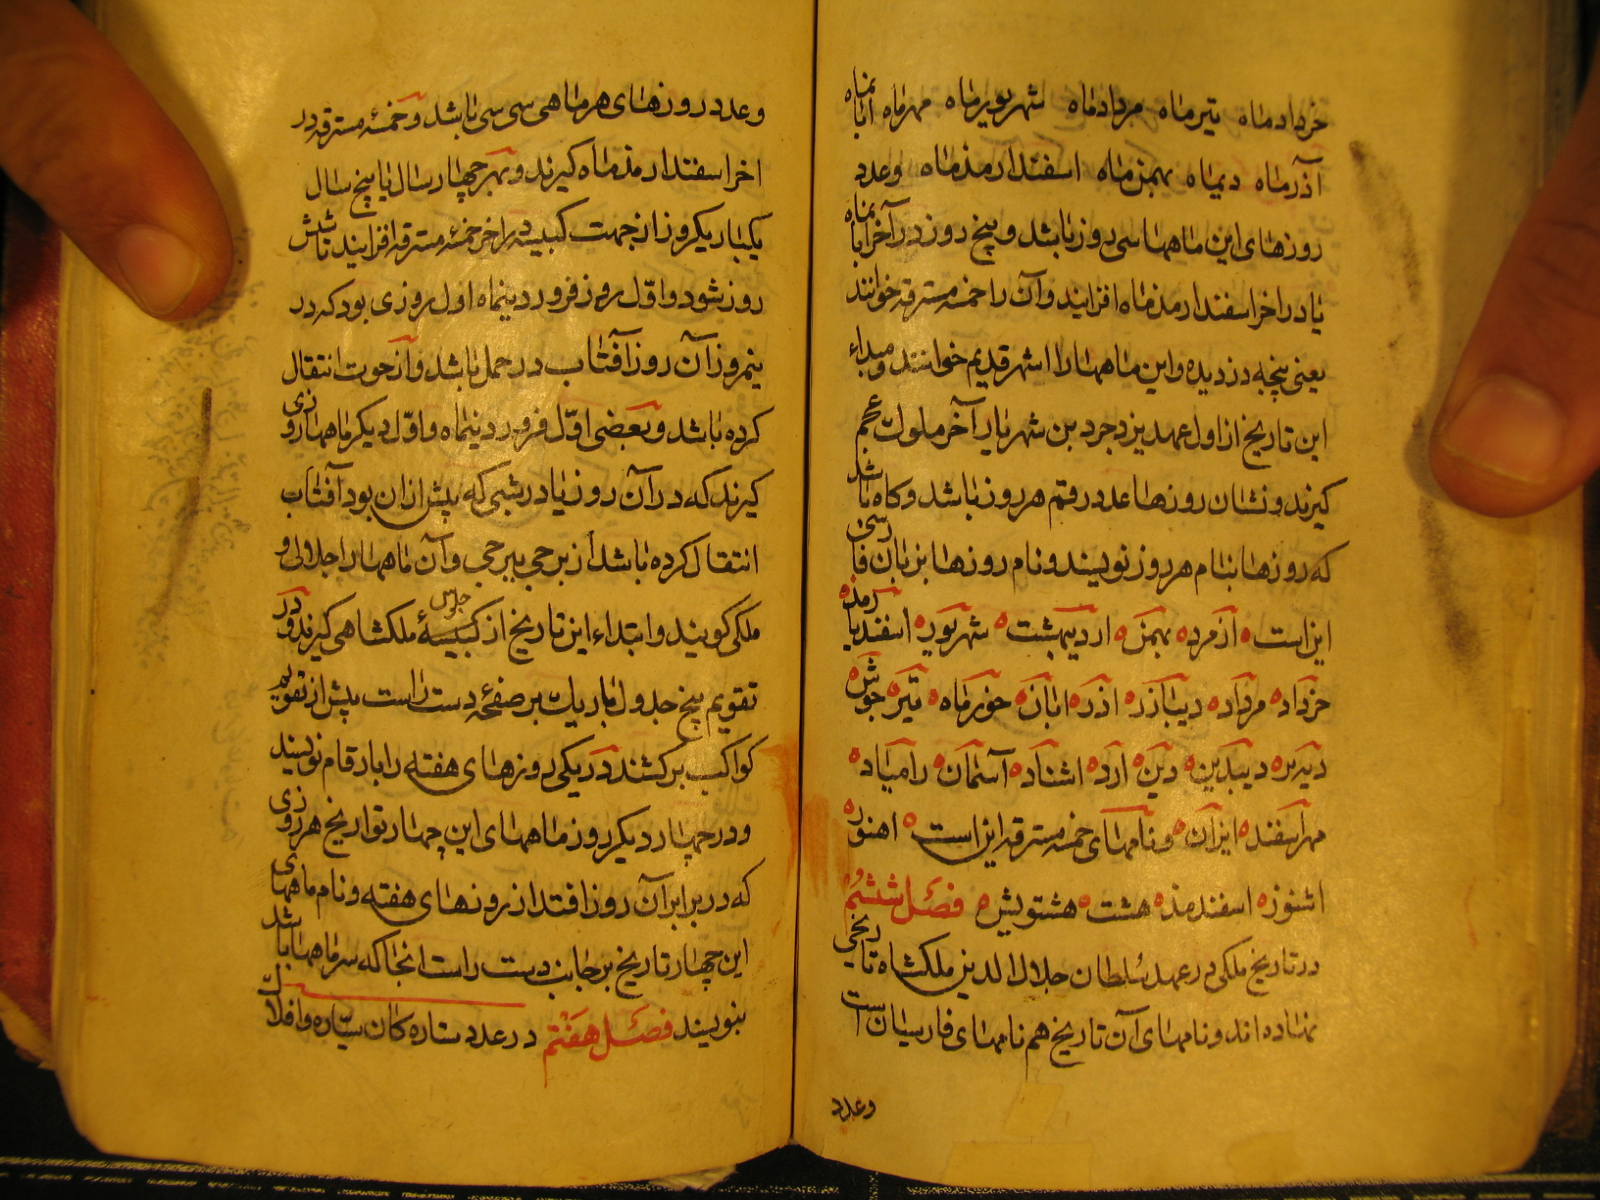 خردادماه تیرماه مردادماه شهریورماه مهرماه ابانماه
آذرماه دیماه بهمن‌ماه اسفندارمذماه وعدد
روزهای این ماهها سی روز باشد و پنج روز در آخر ابانماه
یا در اخر اسفندارمذماه افزایند و آن را خمسه مسترقه خوانند
یعنی پنجه دزدیده و این ماهها را اشهر قدیم خوانند و مبداء
این تاریخ از اول عهد یزدجرد بن شهریار آخر ملوک عجم
کیرند و نشان روزها عدد رقم هر روز باشد و کاه باشد
که روزها بنام هر روز نویسند و نام روزها بزبان فارسی
این است بهمن اردیبهشت شهریور اسفندارمذ
خرداد مرداد دیباذر اذر ابان خور ماه تیر جوش
دیبدین دین ارد اشتاد آسمان رامیاد
مهراسفند ایران و نامهای خمسه مسترقه این است اهنور
اشنوز اسفندمذ هشت هشتویش فصل ششم
در تاریخ ملکی در عهد سلطان جلال الدین ملکشاه تاریخی
نهاده اند و نامهای آن تاریخ هم نامهای فارسیان است
وعدد
وعدد روزهای هر ماهی سی سی باشد و خمسهٔ مسترقه در
اخر اسفندارمذماه کیرند و بهر چهار سال یا پنج سال
یکبار یکروز از جهت کبیسه در اخر خمسهٔ مسترقه افزایند تا شش
روز شود و اوّل روز فروردینماه اول روزی بود که در
نیمروز آن روز آفتاب در حمل باشد و از حوت انتقال
کرده باشد و بعضی اوّل فروردینماه و اوّل دیکر ماهها روزی
کیرند که در آن روز یا در شبی که پیش از ان بود آفتاب
انتقال کرده باشد از برجی ببرجی و آن ماهها را جلالی و
ملکی کویند و ابتداء این تاریخ از کبیسهٔ جلوس ملکشاهی کیرند و در
تقویم پنج جدول باریک بر صفحهٔ دست راست پیش از تقویم
کواکب برکشند در یکی روزهای هفته را بارقام نویسند
و در چهار دیکر روز ماههای این چهار تواریخ هر روزی
که در برابر آن روز افتد از روزهای هفته و نام ماههای
این چهار تاریخ بر جانب دست راست انجا که سر ماهها باشد
بنویسند فصل هفتم در عدد ستاره کان سیّاره و افلاک